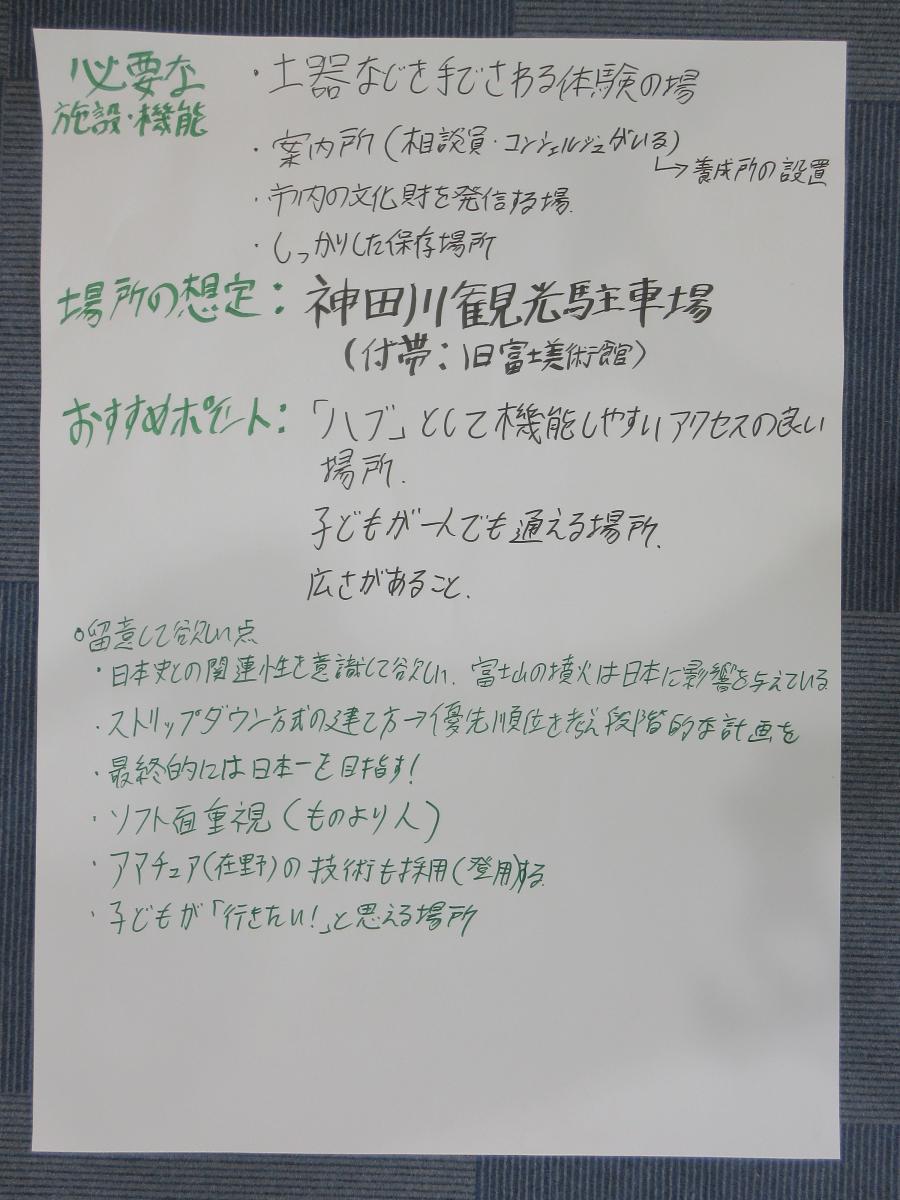 必要な
施設・機能
・土器などを手でさわる体験の場
・案内所(相談員・コンシェルジュがいる)
↳養成所の設置
・市内の文化財を発信する場.
・しっかりした保存場所
場所の想定：神田川観光駐車場
(付帯：旧富士美術館)
おすすめポイント：「ハブ」として機能しやすいアクセスの良い
場所.
子どもが一人でも通える場所.
広さがあること.
○留意して欲しい点
・日本史との関連性を意識して欲しい. 富士山の噴火は日本に影響を与えている
・ストリップダウン方式の建て方→優先順位を考え段階的な計画を
・最終的には日本一を目指す!
・ソフト面重視(ものより人)
・アマチュア(在野)の技術も採用(登用)する.
・子どもが「行きたい!」と思える場所